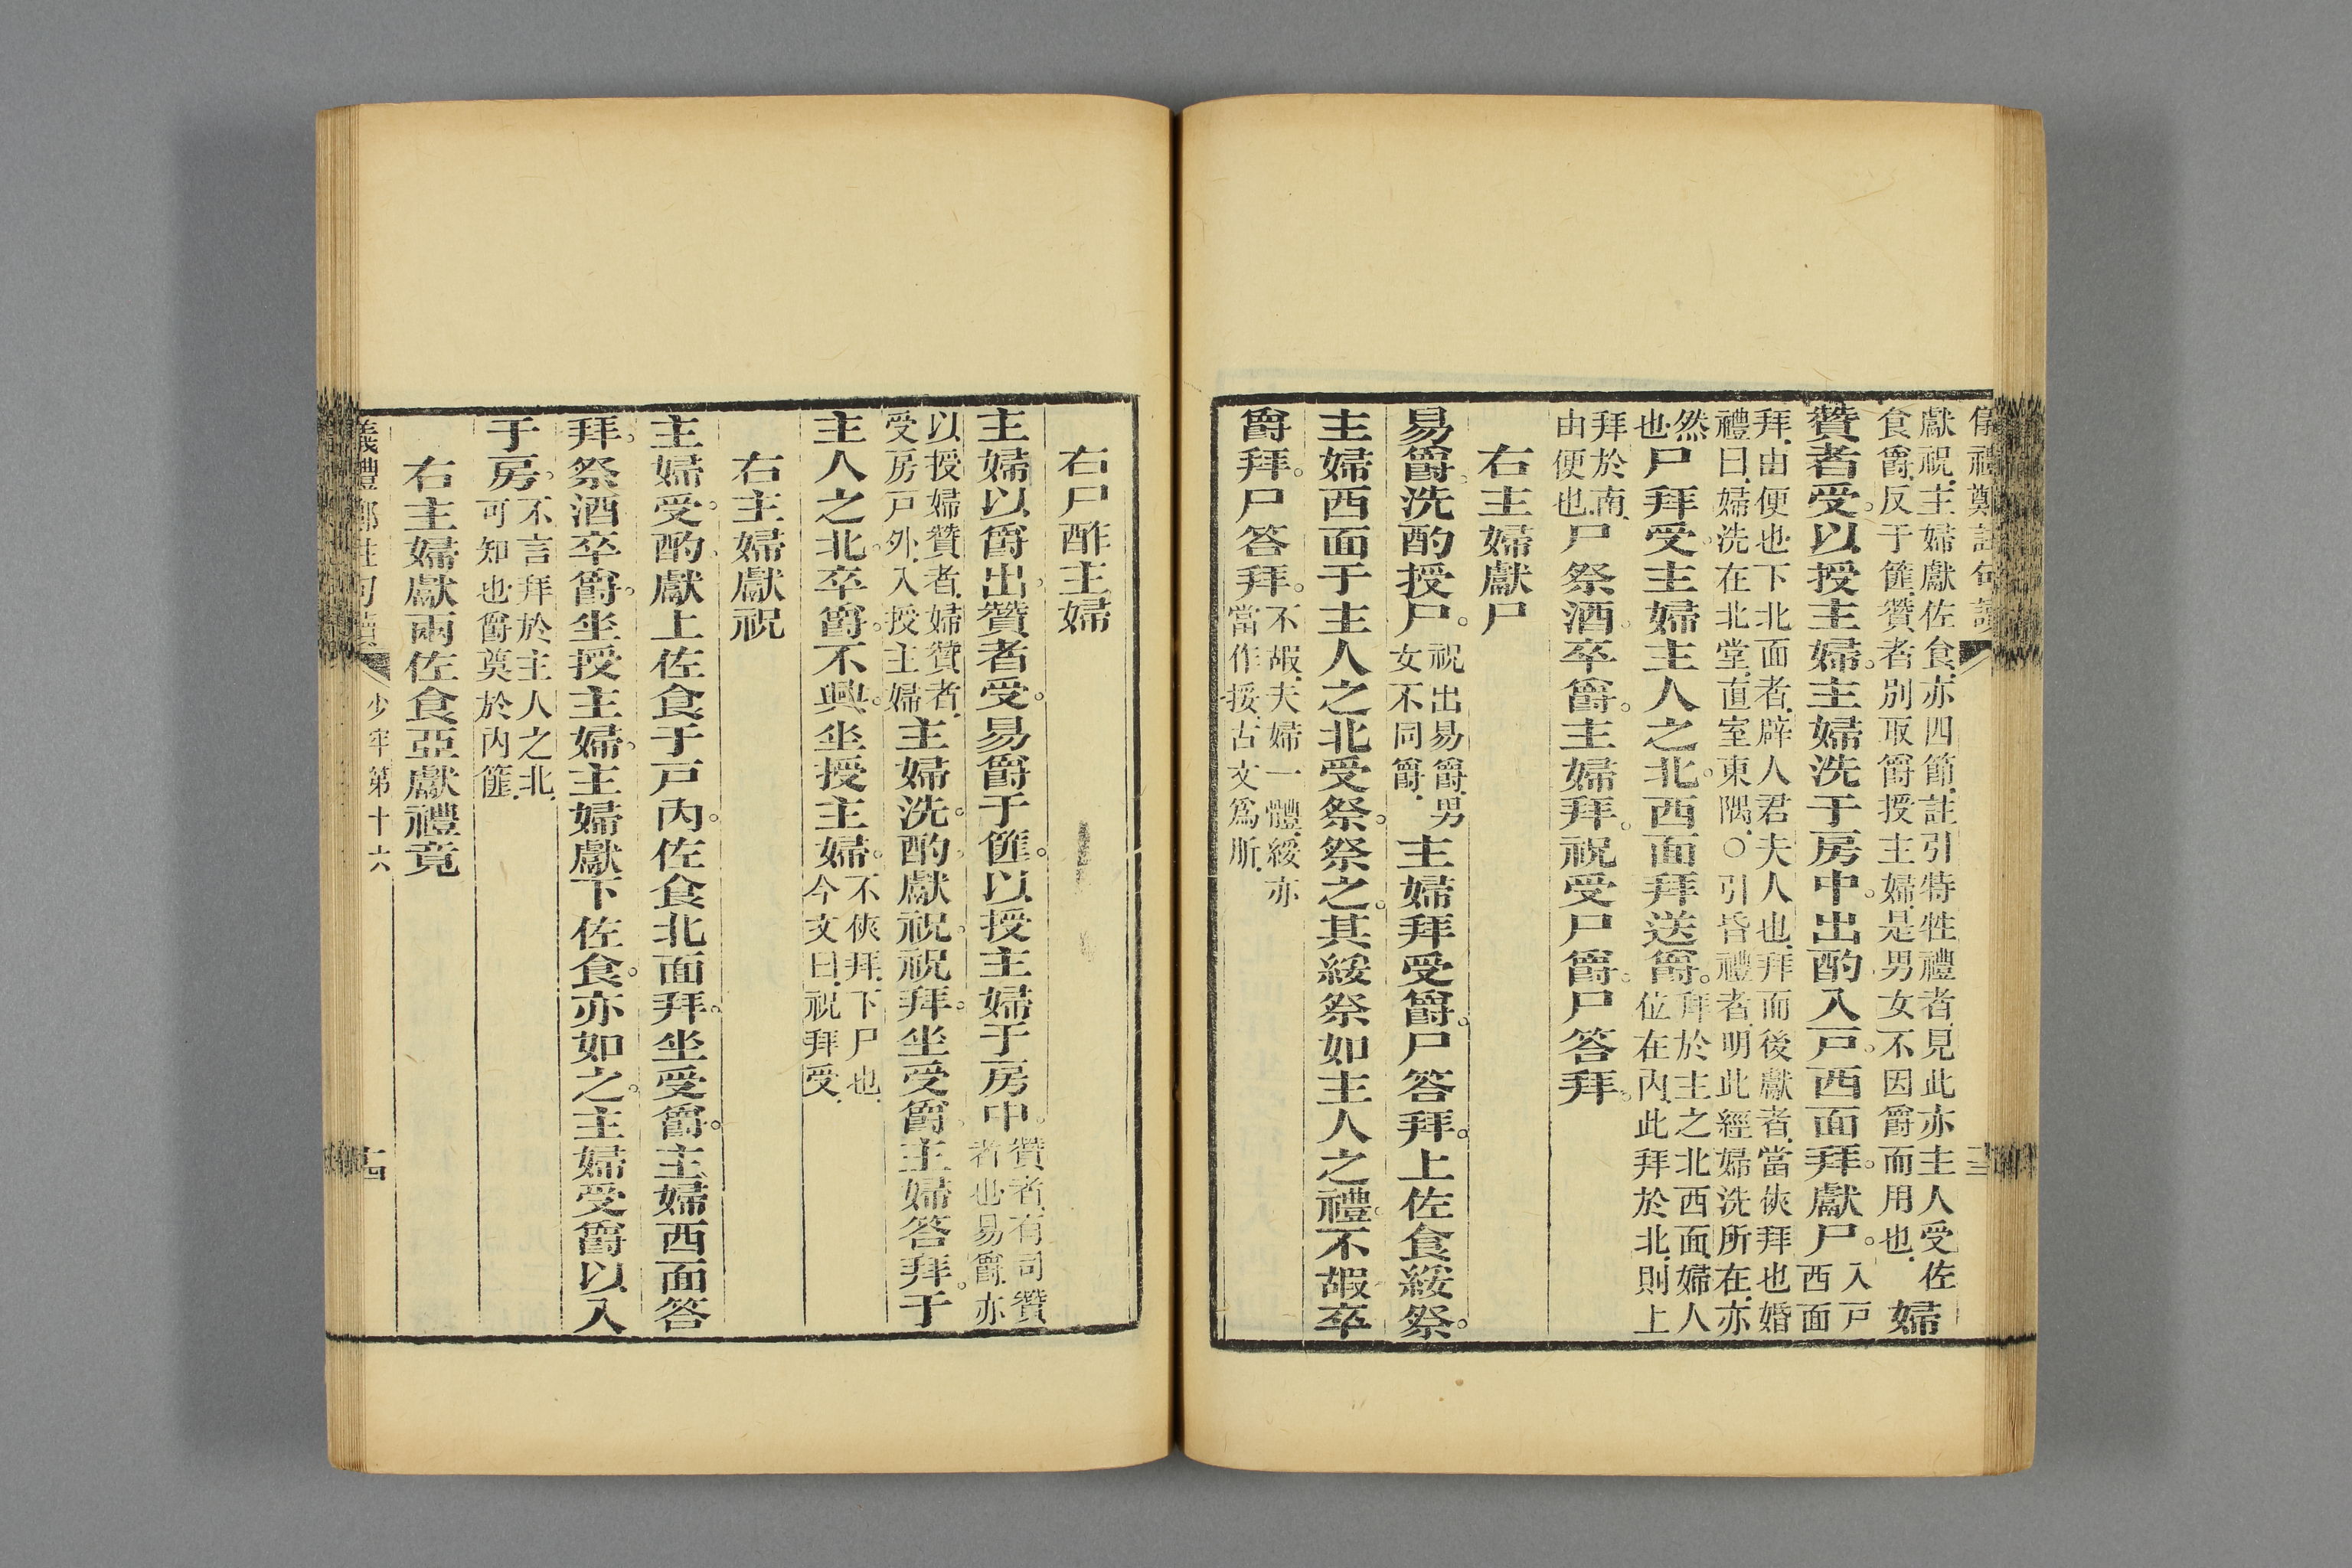 儀禮鄭註句讀
十三
獻祝主婦獻佐食亦四節註引特牲禮者見此亦主人受佐
食爵反于篚贊者別取爵授主婦是男女不因爵而用也
婦
贊者受。以授主婦。主婦洗于房中。出酌入戶。西面拜。獻尸。
入戶
西面
拜由便也下北面者辟人君夫人也拜而後獻者當俠拜也婚
禮曰婦洗在北堂直室東隅○引昏禮者明此經婦洗所在亦
然
也
尸拜受。主婦主人之北。西面拜送爵。
拜於主之北西面婦人
位在內此拜於北則上
拜於南
由便也
尸祭酒。卒爵。主婦拜。祝受尸爵。尸答拜。
右主婦獻尸
易爵洗酌授尸。
祝出易爵男
女不同爵
主婦拜受爵。尸答拜。上佐食綏祭。
主婦西面于主人之北受祭。祭之。其綏祭如主人之禮。不嘏卒
爵拜。尸答拜。
不嘏夫婦一體綏亦
當作挼古文爲肵
右尸酢主婦
主婦以爵出。贊者受。易爵于篚。以授主婦于房中。
贊者有司贊
者也易爵亦
以授婦贊者婦贊者
受房戶外入授主婦
主婦洗。酌獻祝。祝拜。坐受爵。主婦答拜。于
主人之北。卒爵。不興。坐授主婦。
不俠拜下尸也
今文曰祝拜受
右主婦獻祝
主婦受。酌獻上佐食于戶內。佐食北面拜。坐受爵。主婦西面答
拜。祭酒卒爵。坐授主婦。主婦獻下佐食。亦如之。主婦受爵以入
于房。
不言拜於主人之北
可知也爵奠於內篚
右主婦獻兩佐食亞獻禮竟
儀禮鄭註句讀
少牢第十六
十四